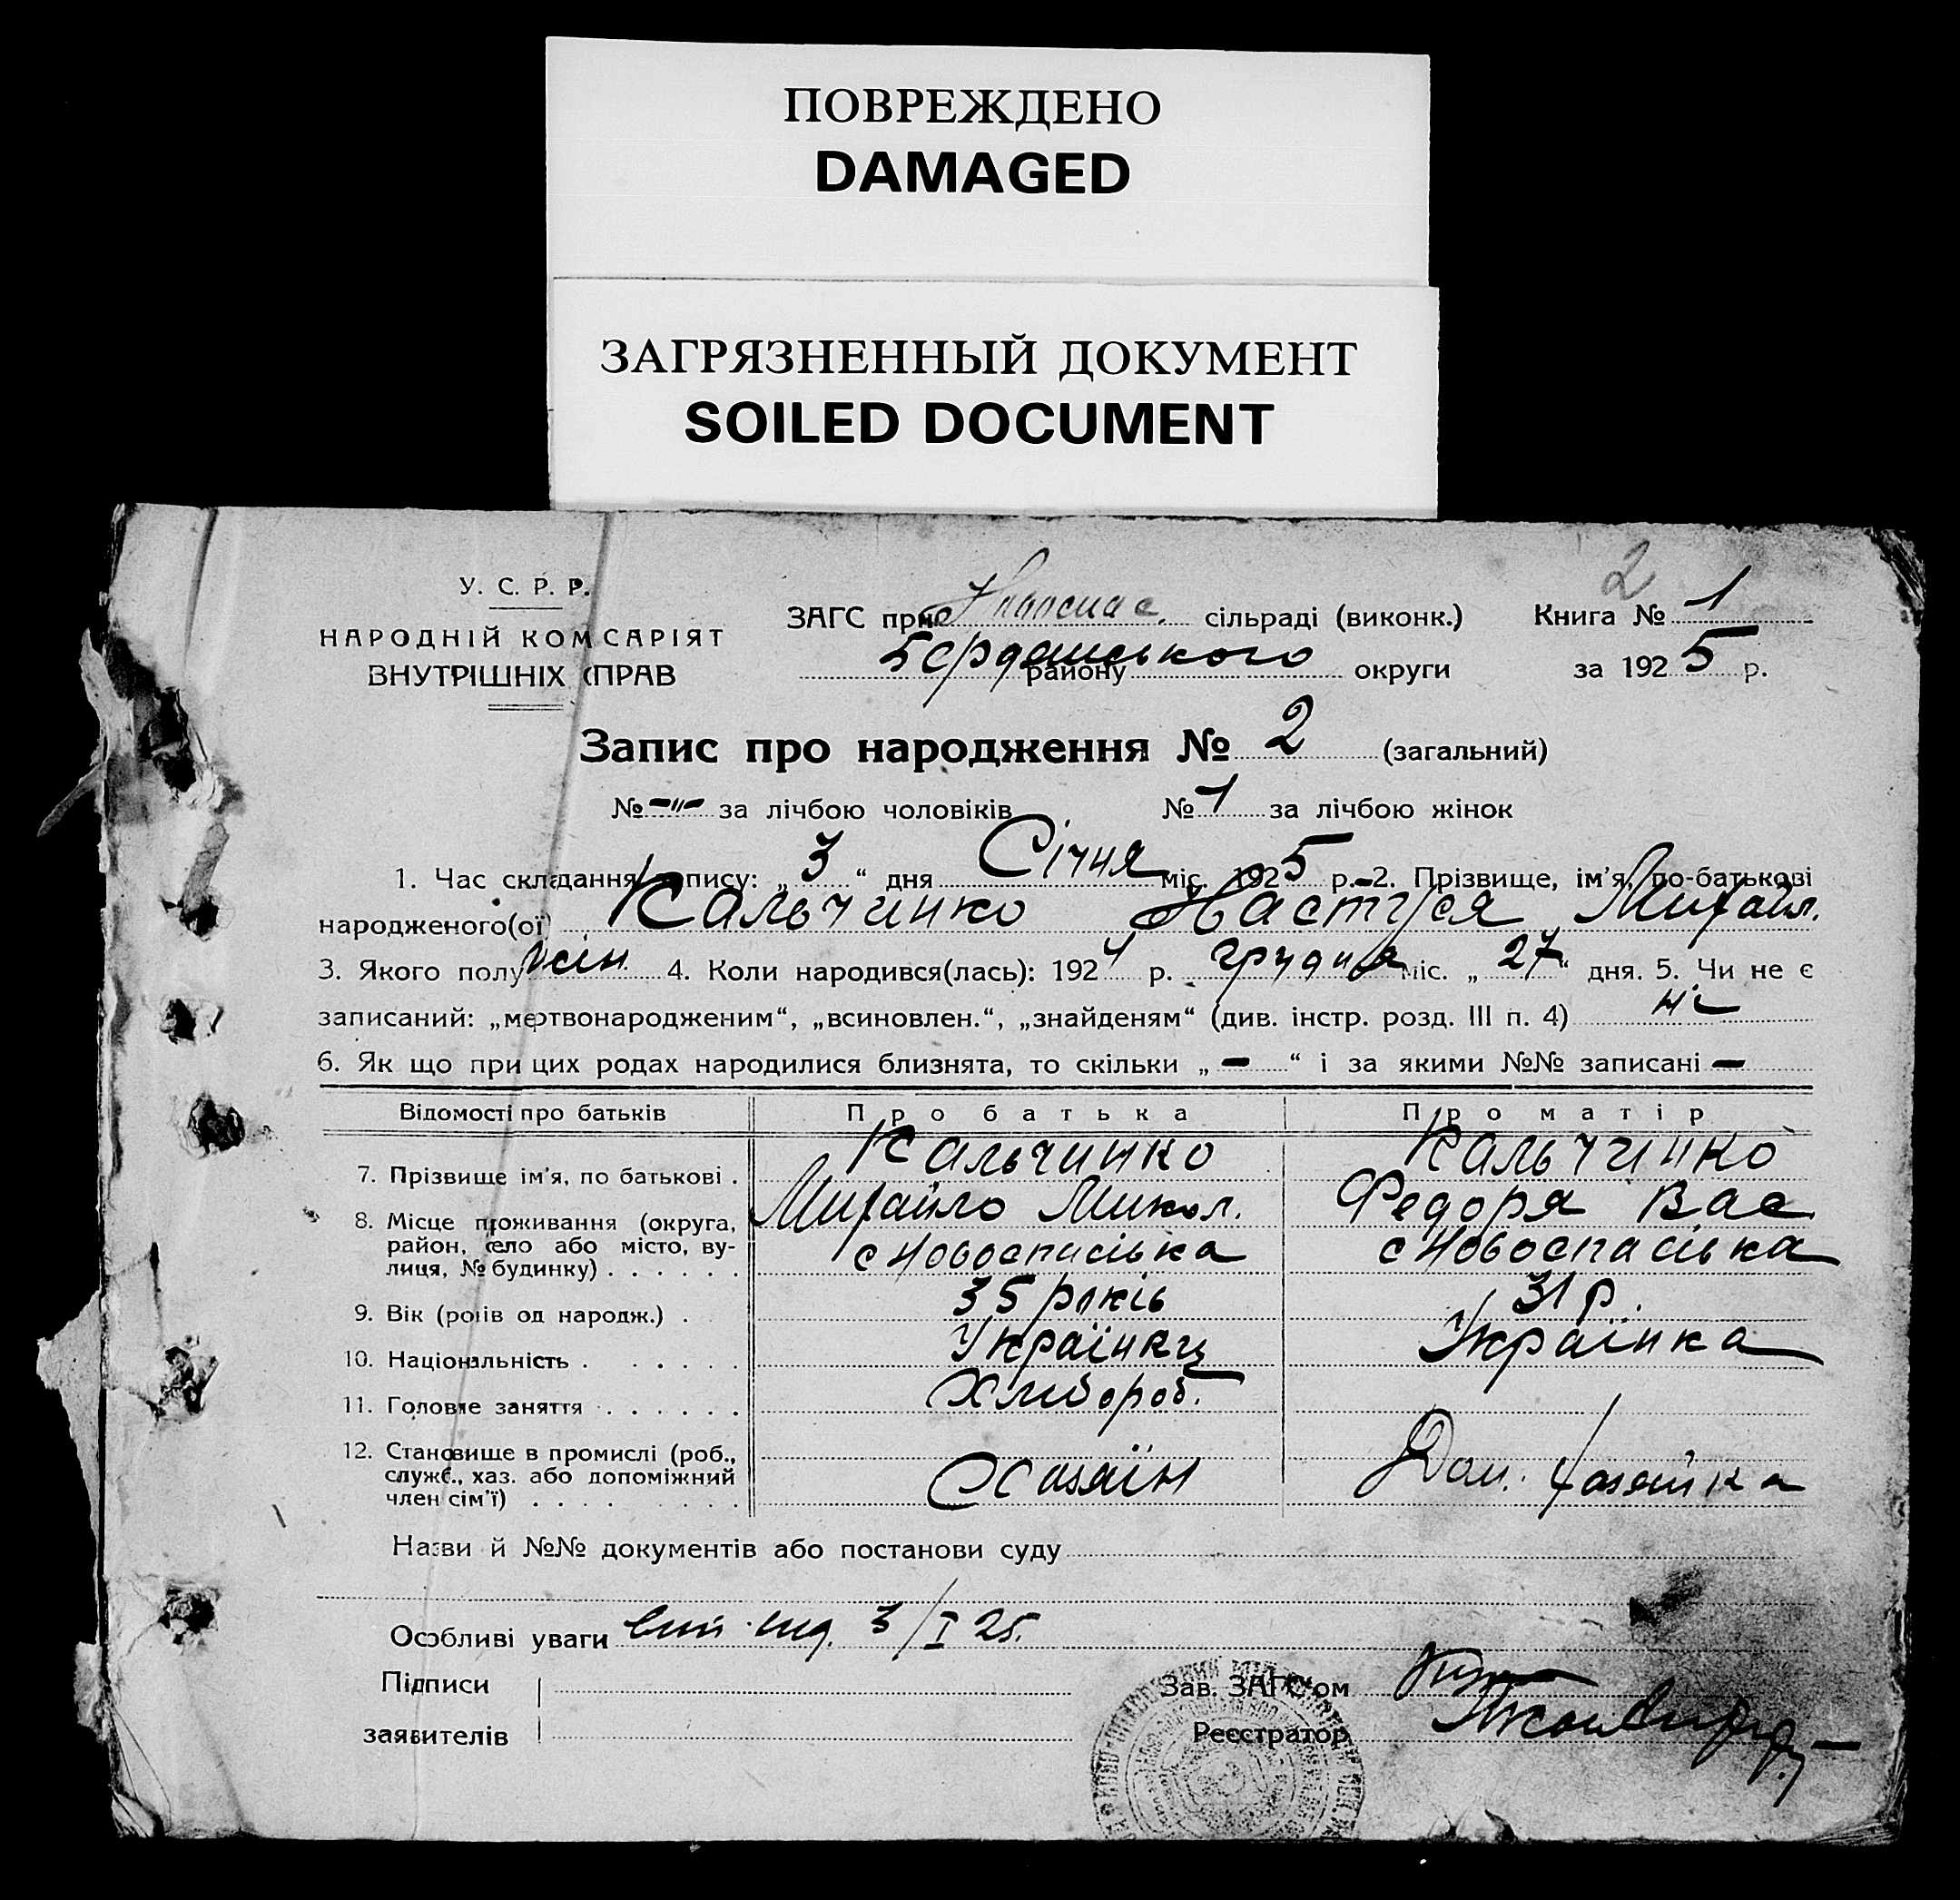 ПОВРЕЖДЕНО
DAMAGED
ЗАГРЯЗНЕННЫЙ ДОКУМЕНТ
SOILED DOCUMENT
2
У. С. Р. Р.
НАРОДНІЙ КОМСАРІЯТ
ВНУТРІШНІХ СПРАВ
ЗАГС при Новоспас. сільраді (виконк.)
Книга № 1
Бердянського району округи
за 1925 р.
Запис про народження № 2 (загальний)
№ -"- за лічбою чоловіків № 1 за лічбою жінок
1. Час складання запису: „ 3 “ дня Січня міс. 1925 р. 2. Прізвище, ім'я, по-батькові
народженого(ої) Кальчинко Настуся Михайл.
3. Якого полу жін. 4. Коли народився(лась): 1924 р. грудня міс. „ 27 “ дня. 5. Чи не є
записаний: „мертвонародженим“, „всиновлен.“, „знайденям“ (див. інстр. розд. III п. 4) ні
6. Як що при цих родах народилися близнята, то скільки „ - “ і за якими №№ записані -
Відомості про батьків Про батька Про матір
7. Прізвище ім'я, по батькові . Кальчинко Кальчинко
Михайло Микол. Федоря Вас
8. Місце проживання (округа, район, село або місто, вулиця, № будинку) . . . . . . с Новоспасівка с Новоспасівка
9. Вік (років од народж.) . 35 років 31 р.
10. Національність . . . . . . Українец Українка
11. Головне заняття . . . . . . Хлібороб.
12. Становище в промислі (роб., служб., хаз. або допоміжний член сім'ї) . . . . . . . . Хазяїн Дом. хазяйка
Назви й №№ документів або постанови суду
Особливі уваги 3/I 25.
Підписи
заявителів
Зав. ЗАГС'ом
Реєстратор